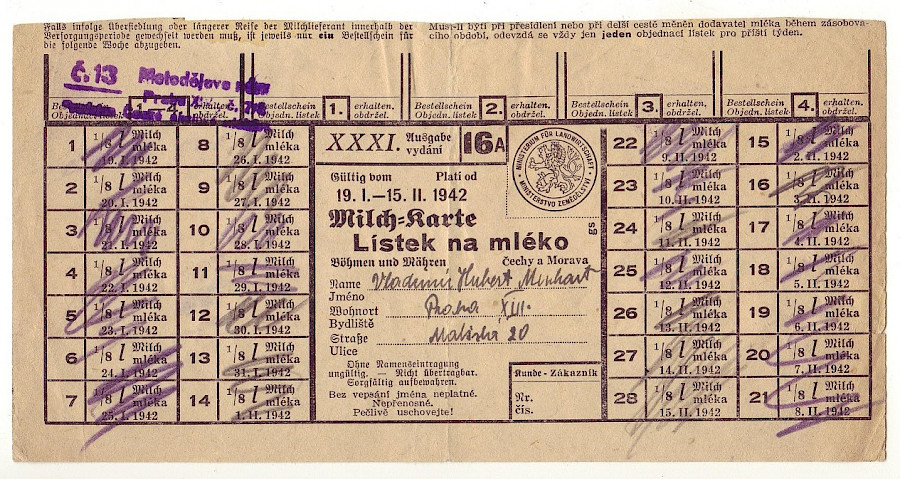 Falls infolge Übersiedlung oder längerer Reise der Milchlieferant innerhalb der
Versorgungsperiode gewechselt werden muß, ist jeweils nur ein Bestellschein für
die folgende Woche abzugeben.
Musí-li býti při přesídlení nebo při delší cestě měněn dodavatel mléka během zásobova-
cího období, odevzdá se vždy jen jeden objednací lístek pro příští týden.
č. 13 Metodějova
Praha
Bestellschein 1. erhalten.
Objedn. lístek obdržel.
Bestellschein 2. erhalten.
Objedn. lístek obdržel.
Bestellschein 3. erhalten.
Objedn. lístek obdržel.
Bestellschein 4. erhalten.
Objedn. lístek obdržel.
1 1/8 l Milch mléka 19. I. 1942
8 1/8 l Milch mléka 26. I. 1942
2 1/8 l Milch mléka 20. I. 1942
9 1/8 l Milch mléka 27. I. 1942
3 1/8 l Milch mléka 21. I. 1942
10 1/8 l Milch mléka 28. I. 1942
4 1/8 l Milch mléka 22. I. 1942
11 1/8 l Milch mléka 29. I. 1942
5 1/8 l Milch mléka 23. I. 1942
12 1/8 l Milch mléka 30. I. 1942
6 1/8 l Milch mléka 24. I. 1942
13 1/8 l Milch mléka 31. I. 1942
7 1/8 l Milch mléka 25. I. 1942
14 1/8 l Milch mléka 1. II. 1942
XXXI. Ausgabe vydání 16A
MINISTERIUM FÜR LANDWIRTSCHAFT
MINISTERSTVO ZEMĚDĚLSTVÍ
Gültig vom Platí od
19. I.—15. II. 1942
Milch-Karte
Lístek na mléko
gs
Böhmen und Mähren Čechy a Morava
Name Vladimír Hubert Minhart
Jméno
Wohnort Praha XIII.
Bydliště
Straße 20
Ulice
Ohne Namenseintragung
ungültig. — Nicht übertragbar.
Sorgfältig aufbewahren.
Bez vepsání jména neplatné.
Nepřenosné.
Pečlivě uschovejte!
Kunde - Zákazník
Nr.
čís.
22 1/8 l Milch mléka 9. II. 1942
15 1/8 l Milch mléka 2. II. 1942
23 1/8 l Milch mléka 10. II. 1942
16 1/8 l Milch mléka 3. II. 1942
24 1/8 l Milch mléka 11. II. 1942
17 1/8 l Milch mléka 4. II. 1942
25 1/8 l Milch mléka 12. II. 1942
18 1/8 l Milch mléka 5. II. 1942
26 1/8 l Milch mléka 13. II. 1942
19 1/8 l Milch mléka 6. II. 1942
27 1/8 l Milch mléka 14. II. 1942
20 1/8 l Milch mléka 7. II. 1942
28 1/8 l Milch mléka 15. II. 1942
21 1/8 l Milch mléka 8. II. 1942